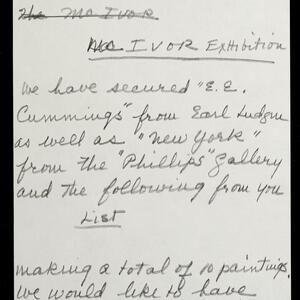 The Mc IVOR
Mc IVOR EXHIBITION
We have secured "E.E.
Cummings" from Earl Ludgin
as well as "New York"
from the "Phillips" Gallery
and the following from you
List
making a total of 10 paintings.
We would like to have